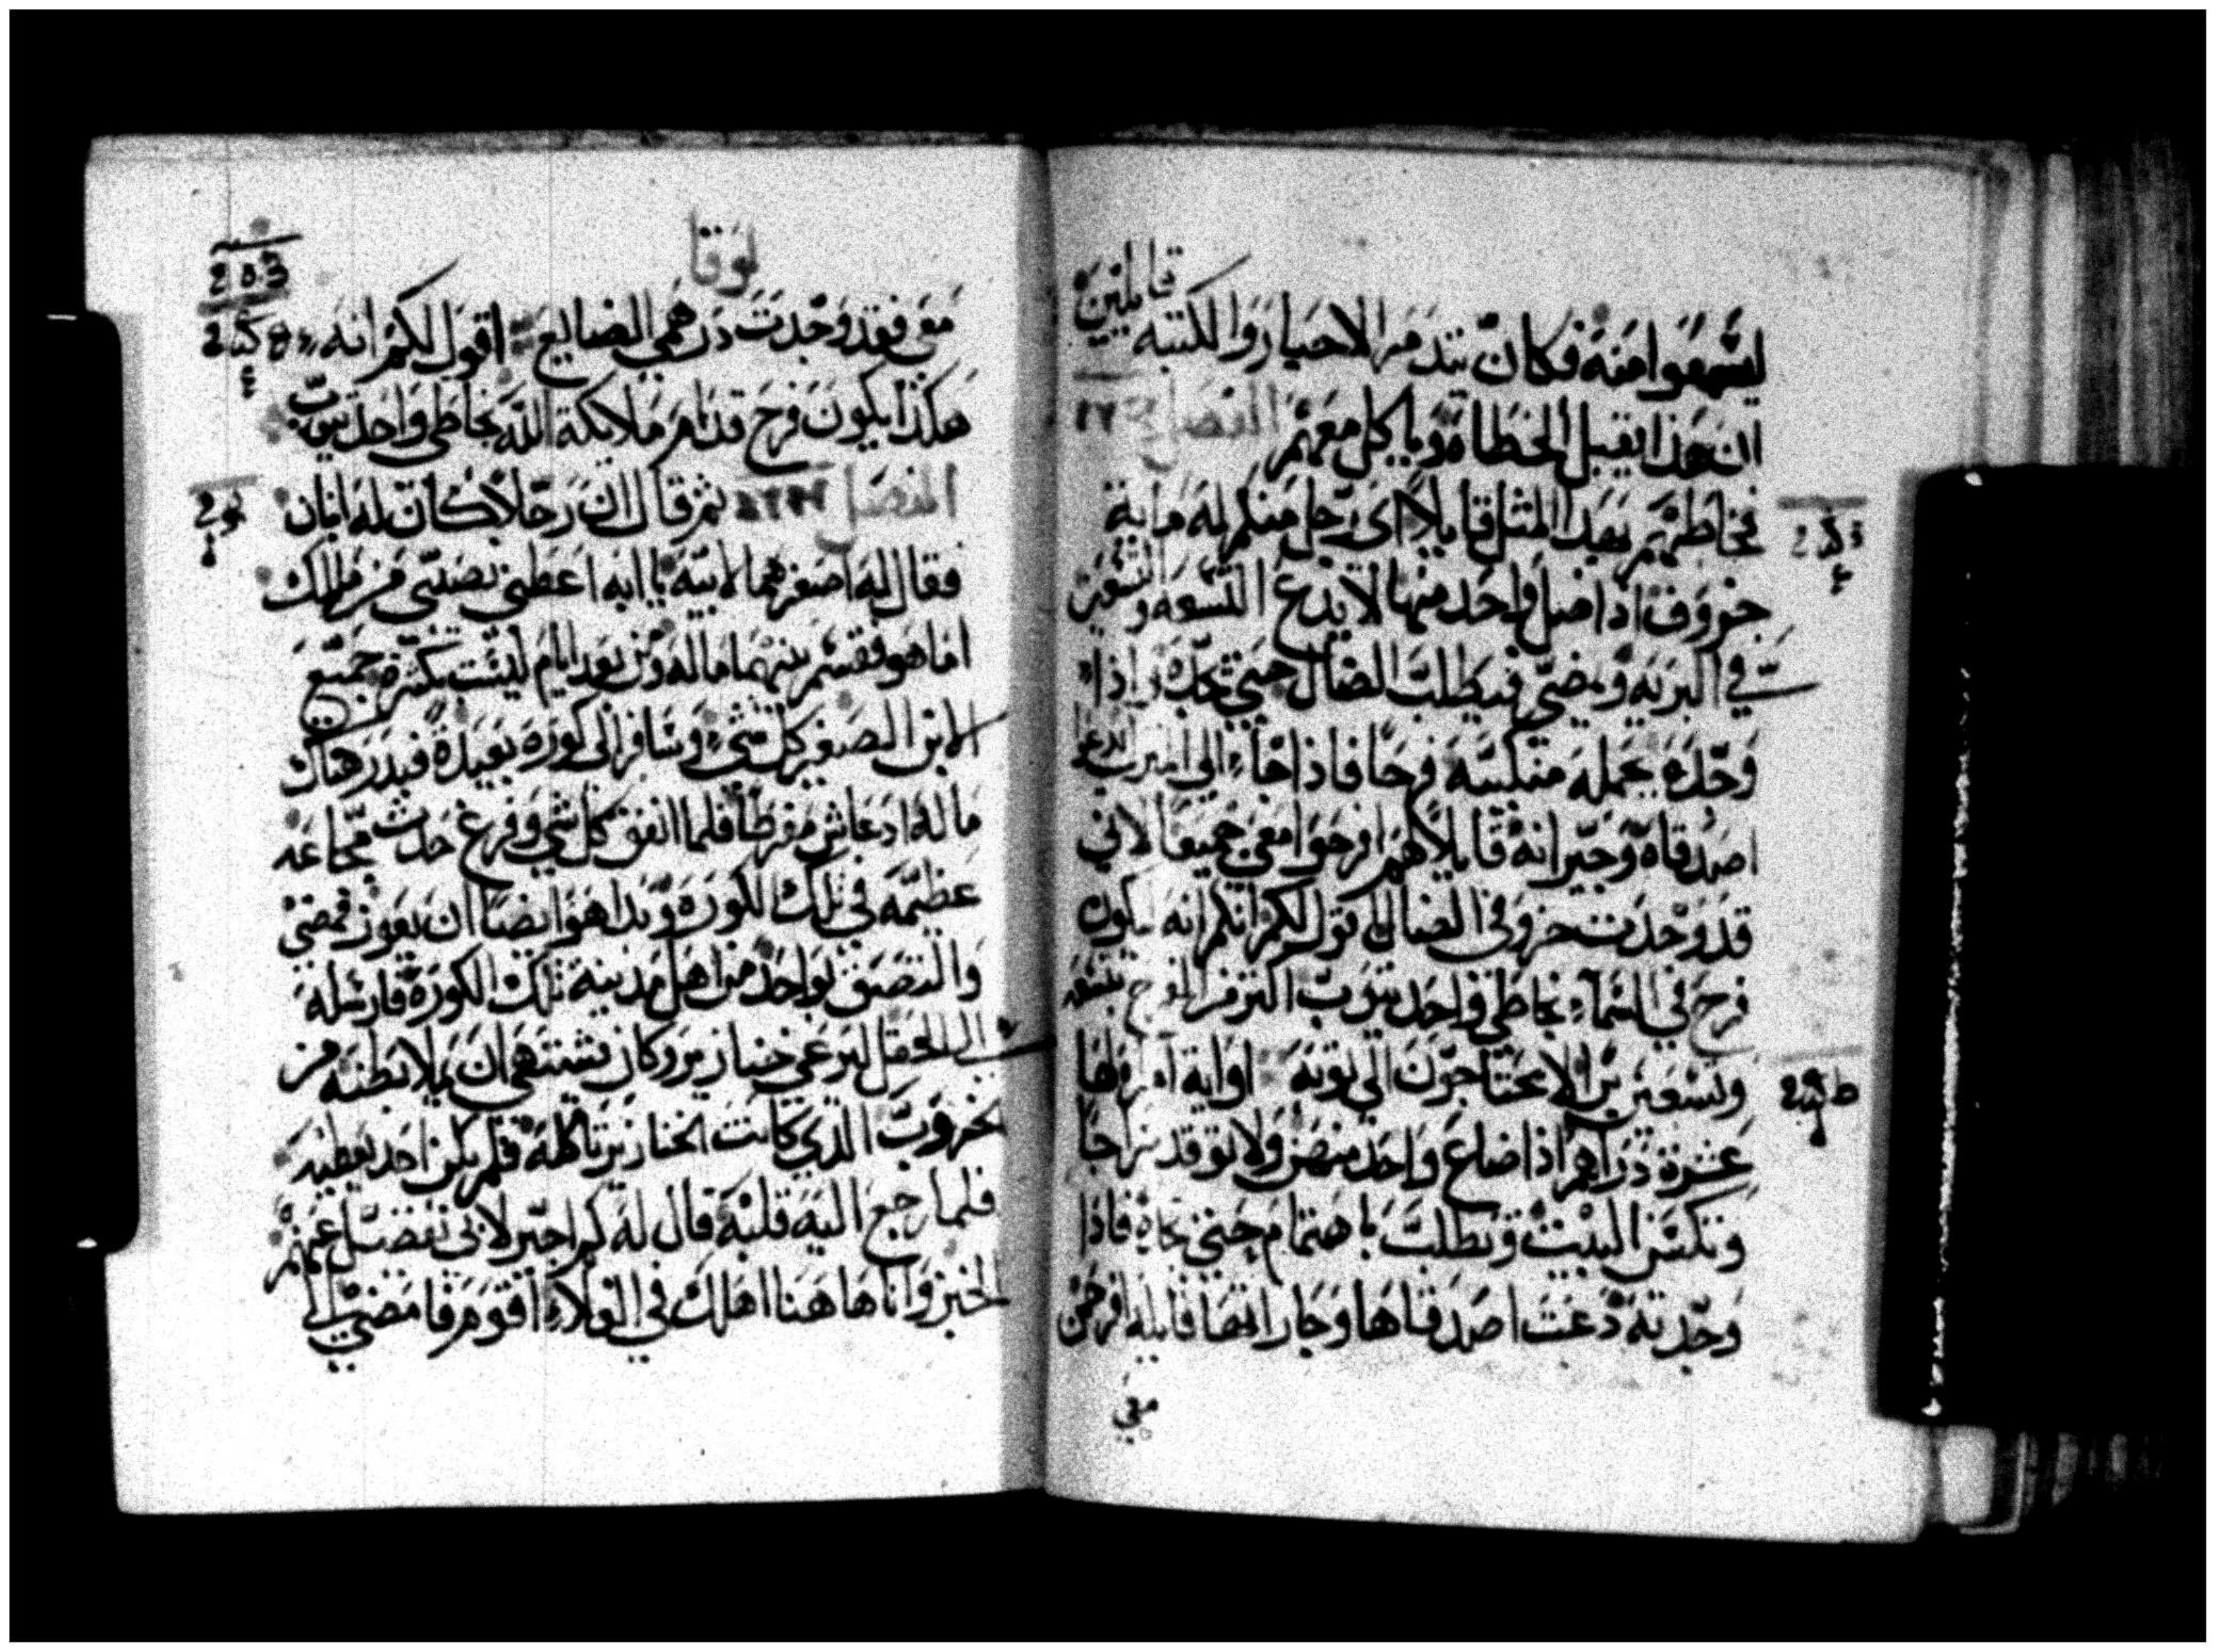 ليسمعوا منه فكان يتذمر الاحبار والكتبه قايلين
ان هذا يقبل الخطاه وياكل معهم الفصل
فخاطبهم بهذا المثل قايلاً اي رجل منكم له ماية
خروف اذا ضل واحد منها لا يدع التسعه والتسعين
في البريه ويمضي فيطلب الضال حتي يجده واذا
وجده يحمله منكبيه فرحًا فاذا جاء الي بيته يدعو
اصدقاه وجيرانه قايلاً لهم افرحوا معي جميعا لاني
قد وجدت خروفي الضال اقول لكم انه يكون
فرح في السماء بخاطي واحد يتوب اكثر من
وتسعين بر لا يحتاجون الي توبه اوايه امراه لها
عشرة دراهم اذا ضاع واحد منهن ولا توقد سراجا
وتكنس البيت وتطلب باهتمام حتي تجده فاذا
وجدته دعت اصدقاها وجاراتها قايله افرحن
معي
لوقا
معي فقد وجدت درهمي الضايع اقول لكم انه
هكذا يكون فرح قدام ملايكة الله بخاطي واحد يتوب
الفصل ثم قال ان رجلاً كان له ابنان
فقال له اصغرهما لابيه يا ابه اعطني نصيبي من مالك
اما هو فقسم بينهما ماله ومن بعد ايام ليست بكثرة جميع
الابن الصغير كل شيء وسافر الي كورة بعيدة فبذر هناك
ماله اذ عاش مفرطا فلما انفق كل شي وفرغ حدث مجاعه
عظيمه في تلك الكوره وبدا هو ايضا ان يعوز فمضي
والتصق بواحد من اهل مدينة تلك الكورة فارسله
الي الحقل ليرعي خنازير وكان يشتهي ان يملا بطنه من
الخروب الذي كانت الخنازير تاكله فلم يكن احد يعطيه
فلما رجع اليه قلبه قال له كم اجير لابي تفضل عنهم
الخبز وانا هاهنا اهلك في الغلاء اقوم فامضي الي